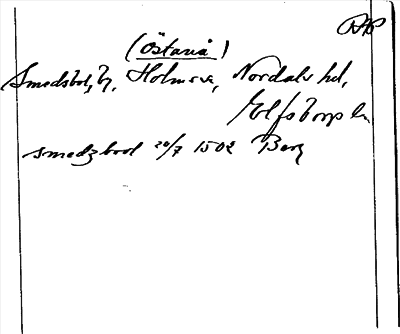 RAP
(Östanå)
Smedsbol, by, Holms sn, Nordals hd,
Elfsborgs ln
smedzbool 20/7 1502 Berg